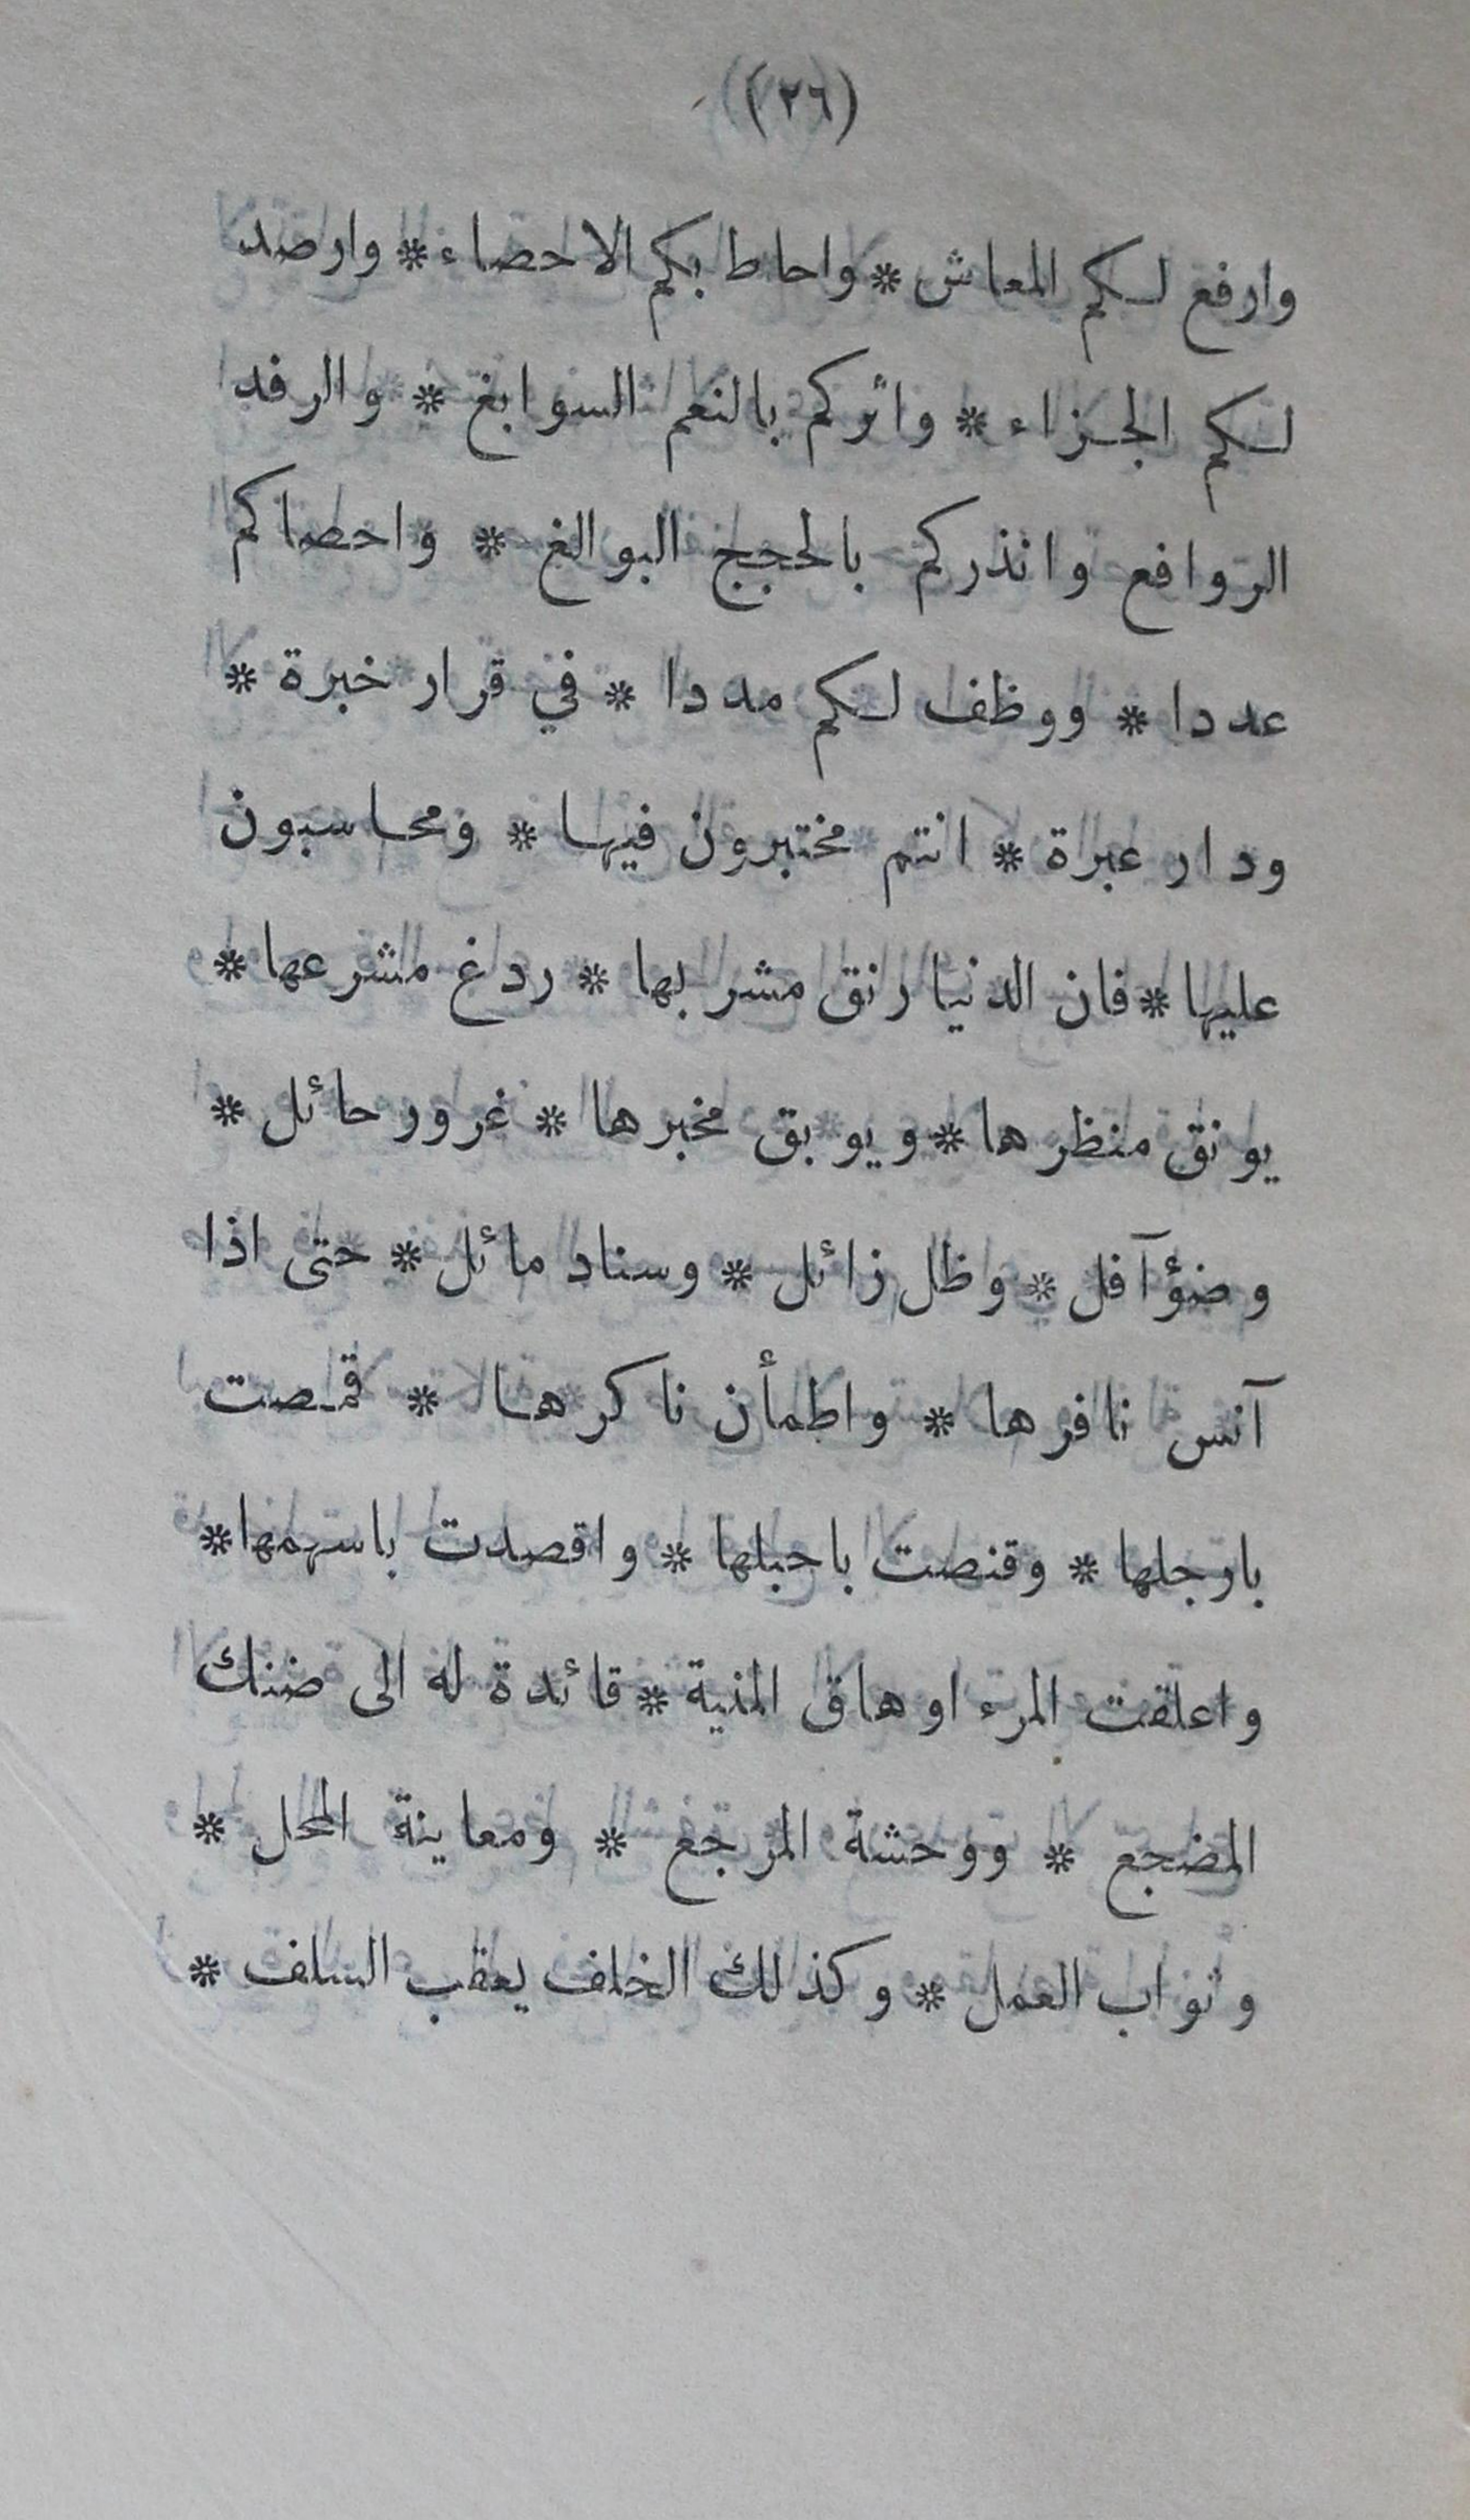 (٢٦)
وارفع لكم المعاش * واحاط بكم الاحصاء * وارصد
لكم الجزاء * واثركم بالنعم السوابغ * والرفد
الروافع وانذركم بالحجج البوالغ * واحصاكم
عددا * ووظف لكم مددا * في قرار خبرة *
ودار عبرة * انتم مختبرون فيها * ومحاسبون
عليها * فان الدنيا رنق مشربها * ردغ مشرعها *
يونق منظرها * ويوبق مخبرها * غرور حائل *
وضؤ آفل * وظل زائل * وسناد مائل * حتى اذا
آنس نافرها * واطمأن ناكرها * قمصت
بارجلها * وقنصت باحبلها * واقصدت باسهمها *
واعلقت المرء اوهاق المنية * قائدة له الى ضنك
المضجع * ووحشة المرجع * ومعاينة المحل *
وثواب العمل * وكذلك الخلف يعقب السلف *